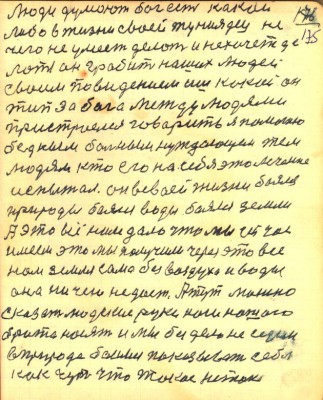 176
175
Люди думают бог есть какой
либо в жизни своей тунеядец не
чего не умеет делат и не хочет де
лоть он грабит наших людей
своим поведением ни какой он
тип за бога между людями
пристроелся говорить я помогаю
бедныем больным нуждающем тем
людям кто его на себя это лечение
испытал. он в своей жизни боялся
природы боялся воды боялся земли
А это всё нам дало что мы
имеем это мы получили через это все
нам земля сама без воздуха и воды
она ни чего не дает. А тут можно
сказат людские руки ноги нашого
брата носят и мы бы дело не
в природе боялися показыват себя
как что такое не